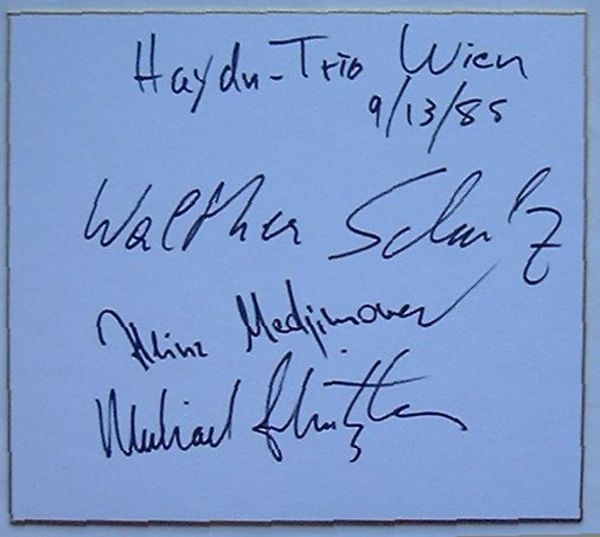 Haydn-Trio Wien
9/13/85
Walther Schulz
Heinz Medjimorec
Michael Schnitzler